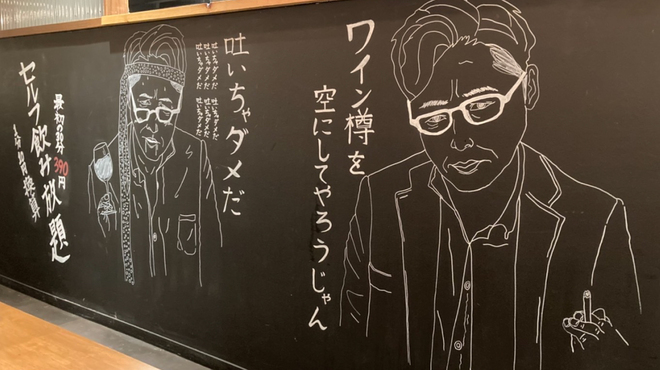 ワイン樽を
空にしてやろうじゃん
吐いちゃダメだ
吐いちゃダメだ
吐いちゃダメだ
吐いちゃダメだ
吐いちゃダメだ
吐いちゃダメだ
吐いちゃダメだ
390円
セルフ飲み放題